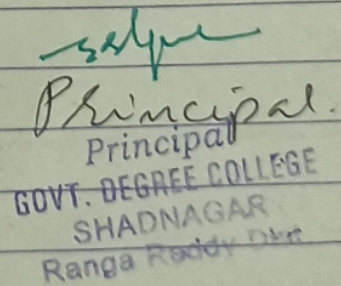 Principal.
Principal
GOVT. DEGREE COLLEGE
SHADNAGAR
Ranga Reddy Dist